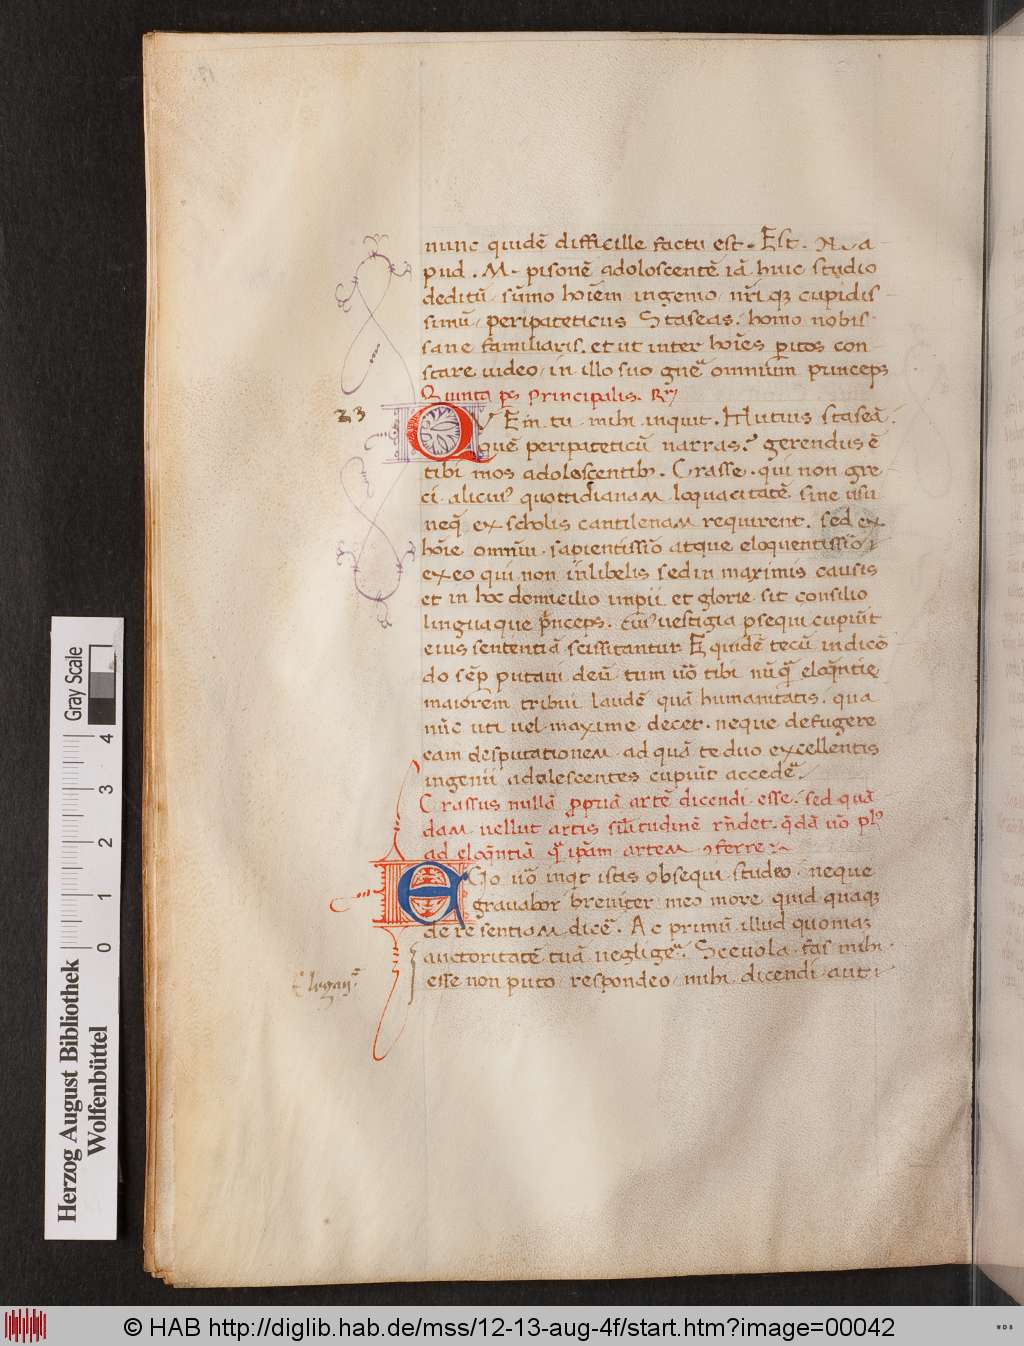 nunc quidē difficille factu est. Est. N. a
pud. M. pisonē adoloscentē iā huic studio
deditū sūmo hoīem ingenio nr̄i q; cupidis
simū peripateticus Staseas. homo nobis
sane familiaris. et ut inter hoīes peritos con
stare uideo in illo suo gn̄e omnium princeps
Quinta ps Principalis. R
23
QVEm tu mihi inquit. Mutius staseā
quē peripateticū narras? gerendus ē
tibi mos adolescentib;. Crasse. qui non gre
ci alicui9 quottidianam loquacitatē sine usu
neq̄ ex scholis cantilenam requirent. sed ex
hoīe omnīu sapientissīo atque eloquentissīo
ex eo qui non in libelis sed in maximis causis
et in hoc domicilio impii et glorie sit consilio
linguaque p̄nceps. cui9 uestigia psequi cupiūt
eius sententiā scissitantur Equidē tecū in dicē
do sēp putaui deū tum uō tibi nūq̄ eloq̄ntie
maiorem tribui laudē quā humanitatis. qua
nūc uti uel maxime decet. neque defugere
eam desputationem ad quā te duo excellentis
ingenii adolescentes cupiūt accedē.
Crassus nullā propriā artē dicendi esse. sed quā
dam uellut artis silitudinē rn̄det. q̄dā uō
ad eloq̄ntiā ip̄am artem ɔferre
EGo uō inqt istis obsequi studeo neque
grauabor breuiter meo more quid quaq;
de re sentiam dicē. Ac primū illud quoniaz
auctoritatē tuā neglige. Sceuola fas mihi
esse non puto respondeo mihi dicendi aut
Herzog August Bibliothek
Wolfenbüttel
0 1 2 3 4
Gray Scale
© HAB http://diglib.hab.de/mss/12-13-aug-4f/start.htm?image=00042